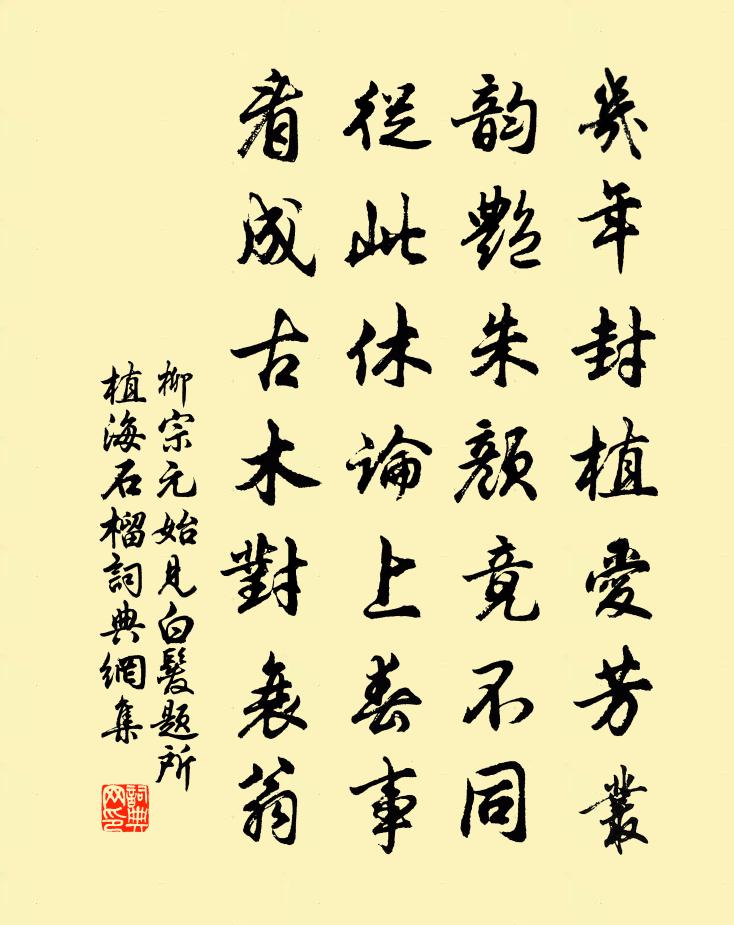 幾年封植愛芳叢
韵艷朱顏竟不同
從此休論上春事
看成古木對衰翁
柳宗元始見白髮题所
植海石榴詞典網集
詞典
网印